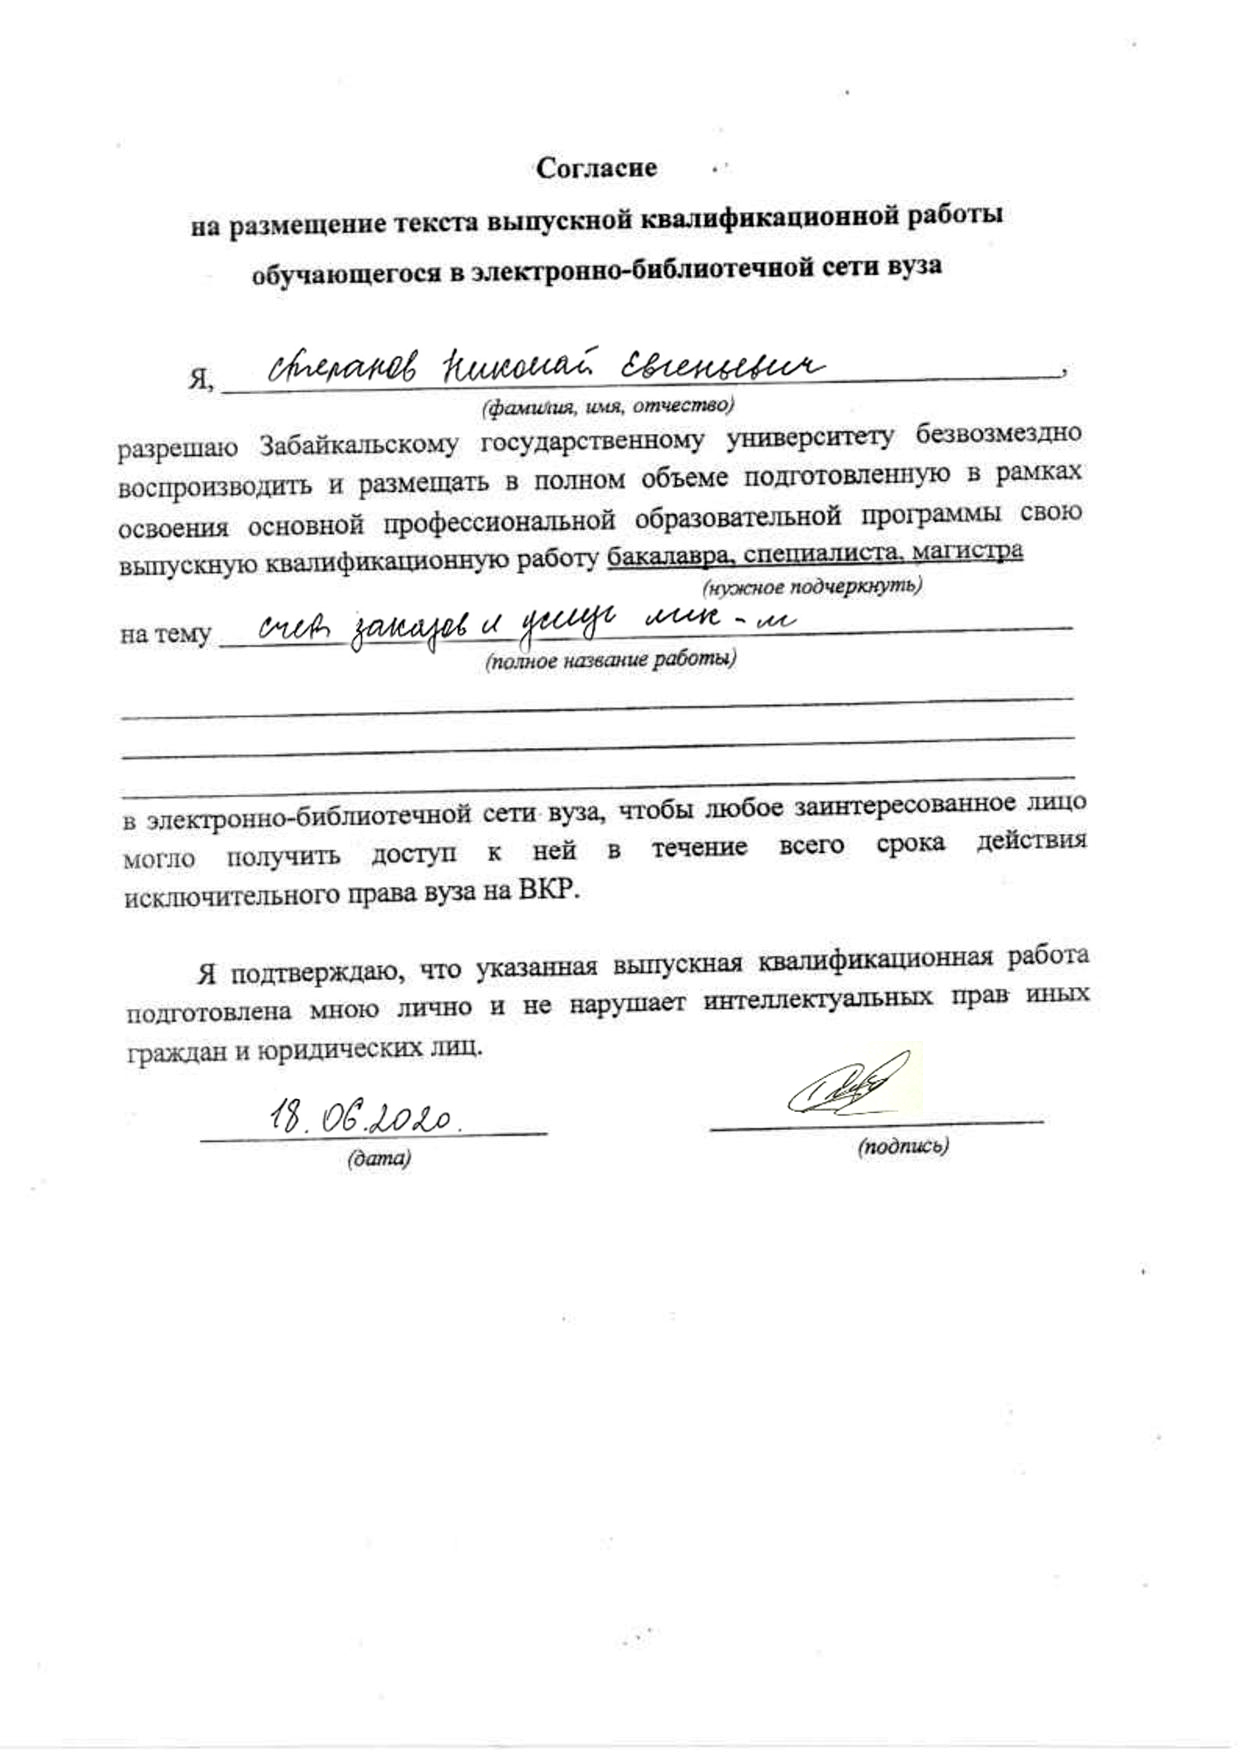 Согласие
на размещение текста выпускной квалификационной работы
обучающегося в электронно-библиотечной сети вуза
Я, Степанов Николай Евгеньевич,
(фамилия, имя, отчество)
разрешаю Забайкальскому государственному университету безвозмездно
воспроизводить и размещать в полном объеме подготовленную в рамках
освоения основной профессиональной образовательной программы свою
выпускную квалификационную работу бакалавра, специалиста, магистра
(нужное подчеркнуть)
на тему счет заказов и услуг
(полное название работы)
в электронно-библиотечной сети вуза, чтобы любое заинтересованное лицо
могло получить доступ к ней в течение всего срока действия
исключительного права вуза на ВКР.
Я подтверждаю, что указанная выпускная квалификационная работа
подготовлена мною лично и не нарушает интеллектуальных прав иных
граждан и юридических лиц.
18.06.2020.
(дата) (подпись)